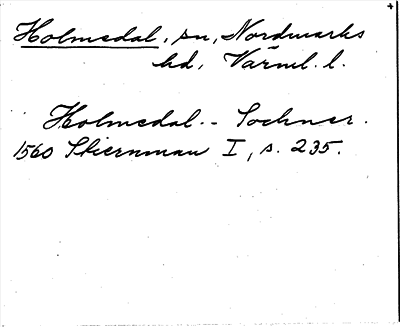 Holmedal, sn, Nordmarks
hd, Värml. l.
Holmedal -- Sochner.
1560 Stiernman I, s. 235.